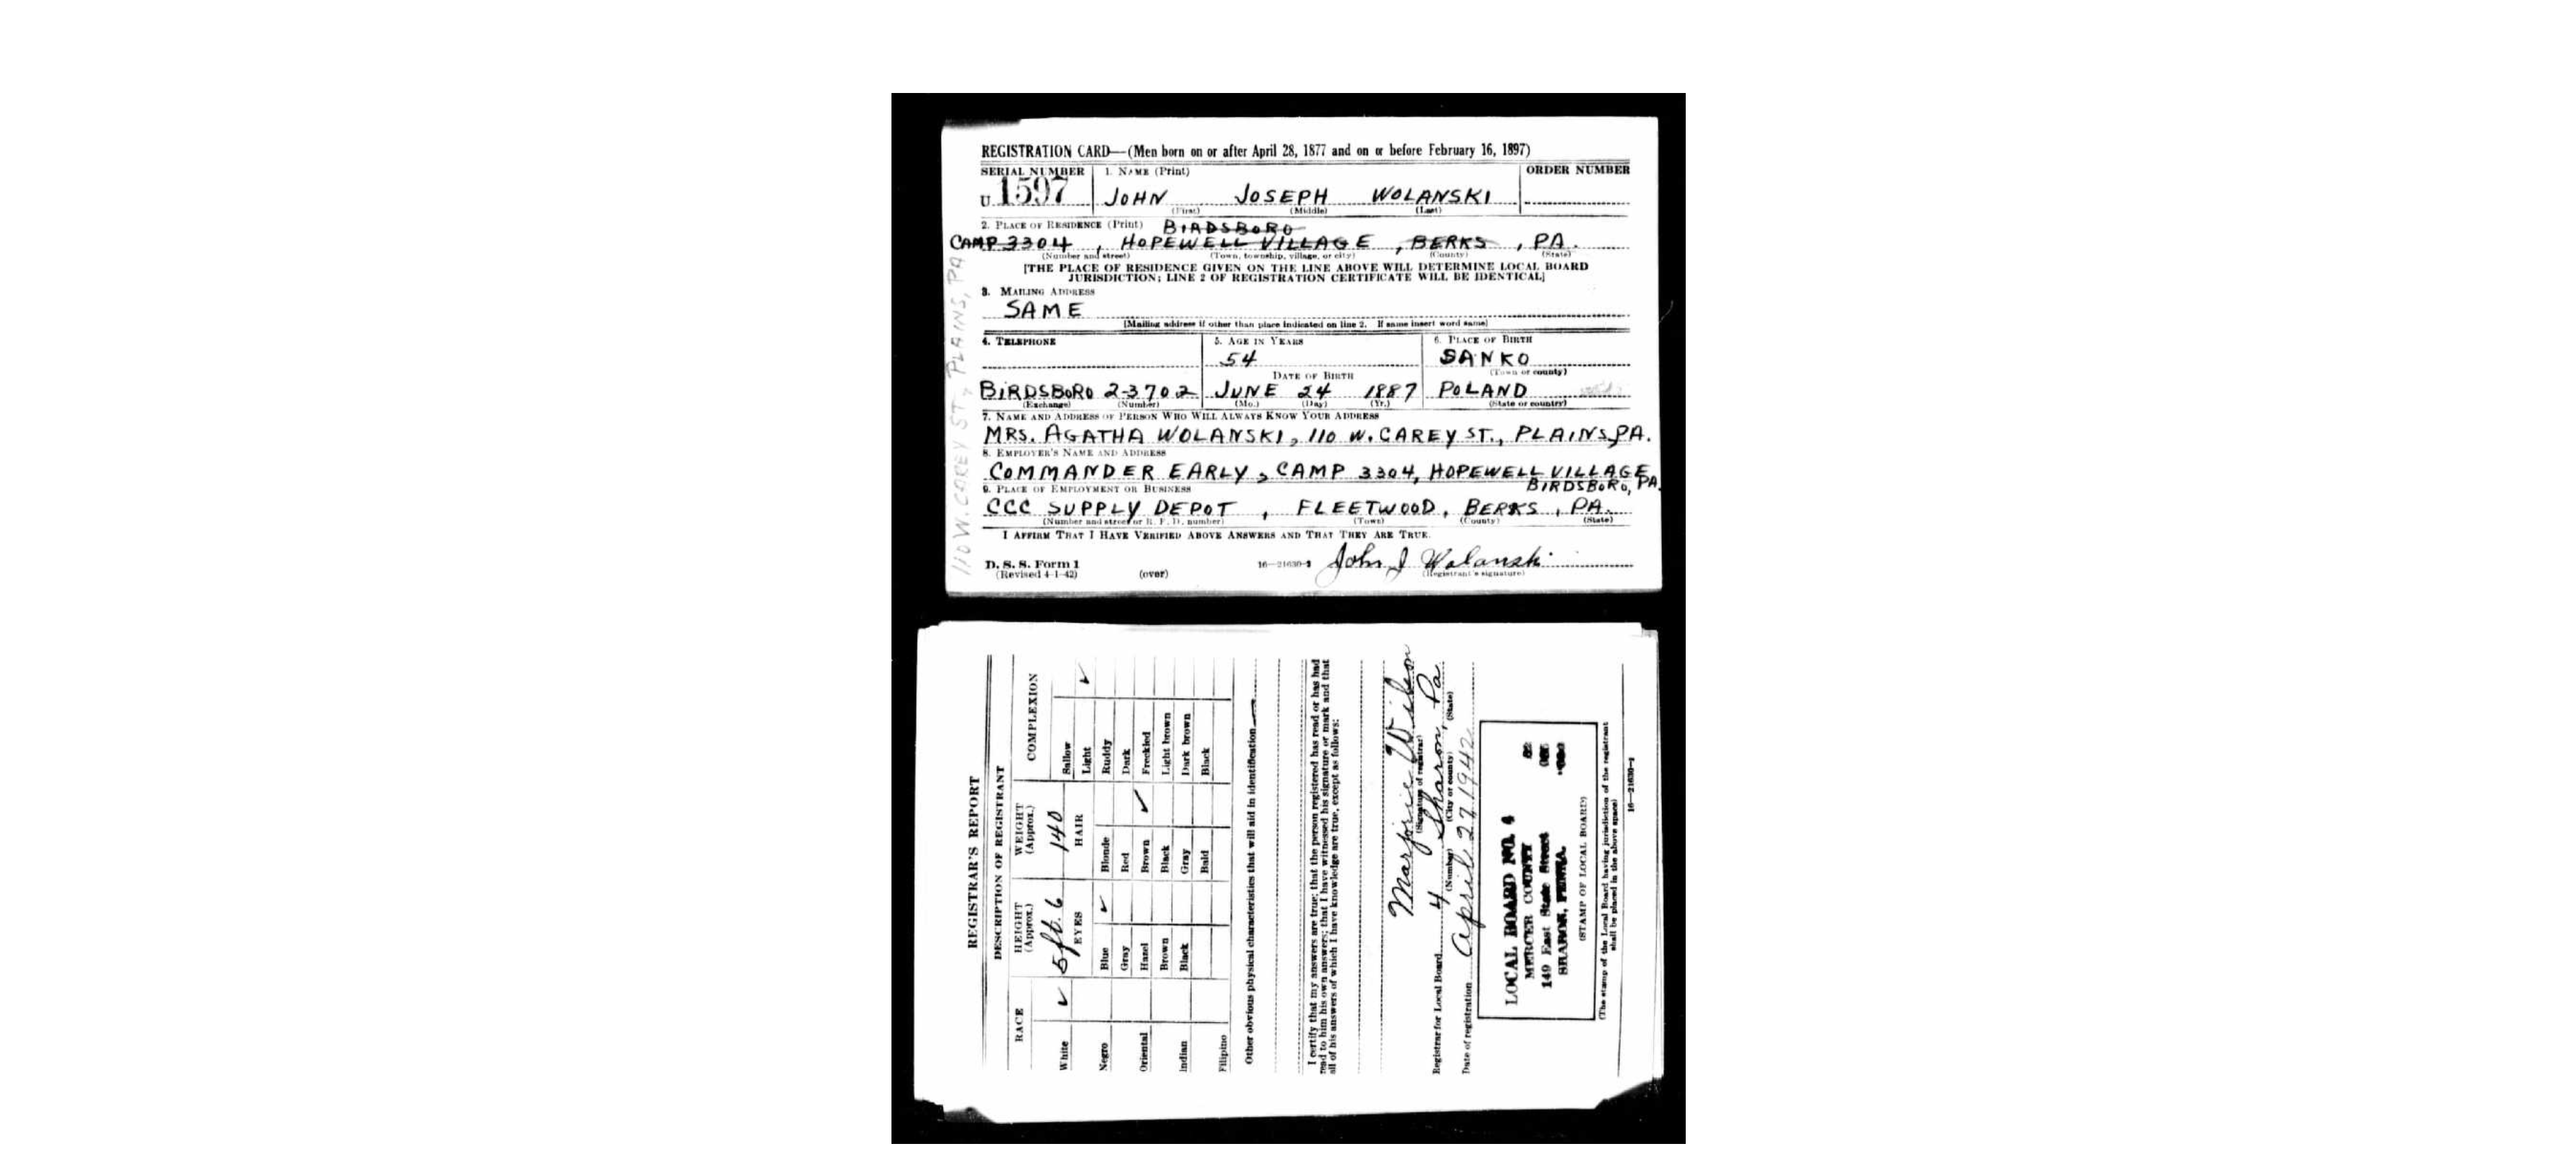 REGISTRATION CARD—(Men born on or after April 28, 1877 and on or before February 16, 1897)
SERIAL NUMBER 1. NAME (Print) ORDER NUMBER
U 1597 JOHN JOSEPH WOLANSKI
(First) (Middle) (Last)
2. PLACE OF RESIDENCE (Print) BIRDSBORO
CAMP 3304, HOPEWELL VILLAGE, BERKS, PA.
(Number and street) (Town, township, village, or city) (County) (State)
[THE PLACE OF RESIDENCE GIVEN ON THE LINE ABOVE WILL DETERMINE LOCAL BOARD
JURISDICTION; LINE 2 OF REGISTRATION CERTIFICATE WILL BE IDENTICAL]
3. MAILING ADDRESS
SAME
[Mailing address if other than place indicated on line 2. If same insert word same]
4. TELEPHONE 5. AGE IN YEARS 6. PLACE OF BIRTH
54 SANKO
DATE OF BIRTH (Town or county)
BIRDSBORO 2-3702 JUNE 24 1887 POLAND
(Exchange) (Number) (Mo.) (Day) (Yr.) (State or country)
7. NAME AND ADDRESS OF PERSON WHO WILL ALWAYS KNOW YOUR ADDRESS
MRS. AGATHA WOLANSKI, 110 W. CAREY ST., PLAINS, PA.
8. EMPLOYER'S NAME AND ADDRESS
COMMANDER EARLY, CAMP 3304, HOPEWELL VILLAGE
BIRDSBORO, PA.
9. PLACE OF EMPLOYMENT OR BUSINESS
CCC SUPPLY DEPOT, FLEETWOOD, BERKS, PA.
(Number and street or R. F. D. number) (Town) (County) (State)
I AFFIRM THAT I HAVE VERIFIED ABOVE ANSWERS AND THAT THEY ARE TRUE.
D. S. S. Form 1
(Revised 4-1-42) (over) 16—21630-2 John J Wolanski
(Registrant's signature)
110 W. CAREY ST, PLAINS, PA
REGISTRAR'S REPORT
DESCRIPTION OF REGISTRANT
RACE HEIGHT (Approx.) WEIGHT (Approx.) COMPLEXION
5 ft. 6 140
EYES HAIR
White ✓ Sallow
Light ✓
Negro Blue ✓ Blonde Ruddy
Gray Red Dark
Oriental Hazel Brown ✓ Freckled
Brown Black Light brown
Indian Black Gray Dark brown
Bald Black
Filipino
Other obvious physical characteristics that will aid in identification
I certify that my answers are true; that the person registered has read or has had
read to him his own answers; that I have witnessed his signature or mark and that
all of his answers of which I have knowledge are true, except as follows:
Marjorie Wilson
(Signature of registrar)
Registrar for Local Board 4 Sharon, Pa
(Number) (City or county) (State)
Date of registration April 27 1942
LOCAL BOARD NO. 4
MERCER COUNTY
149 East State Street
SHARON, PENNA.
(STAMP OF LOCAL BOARD)
(The stamp of the Local Board having jurisdiction of the registrant
shall be placed in the above space)
16—21630-2